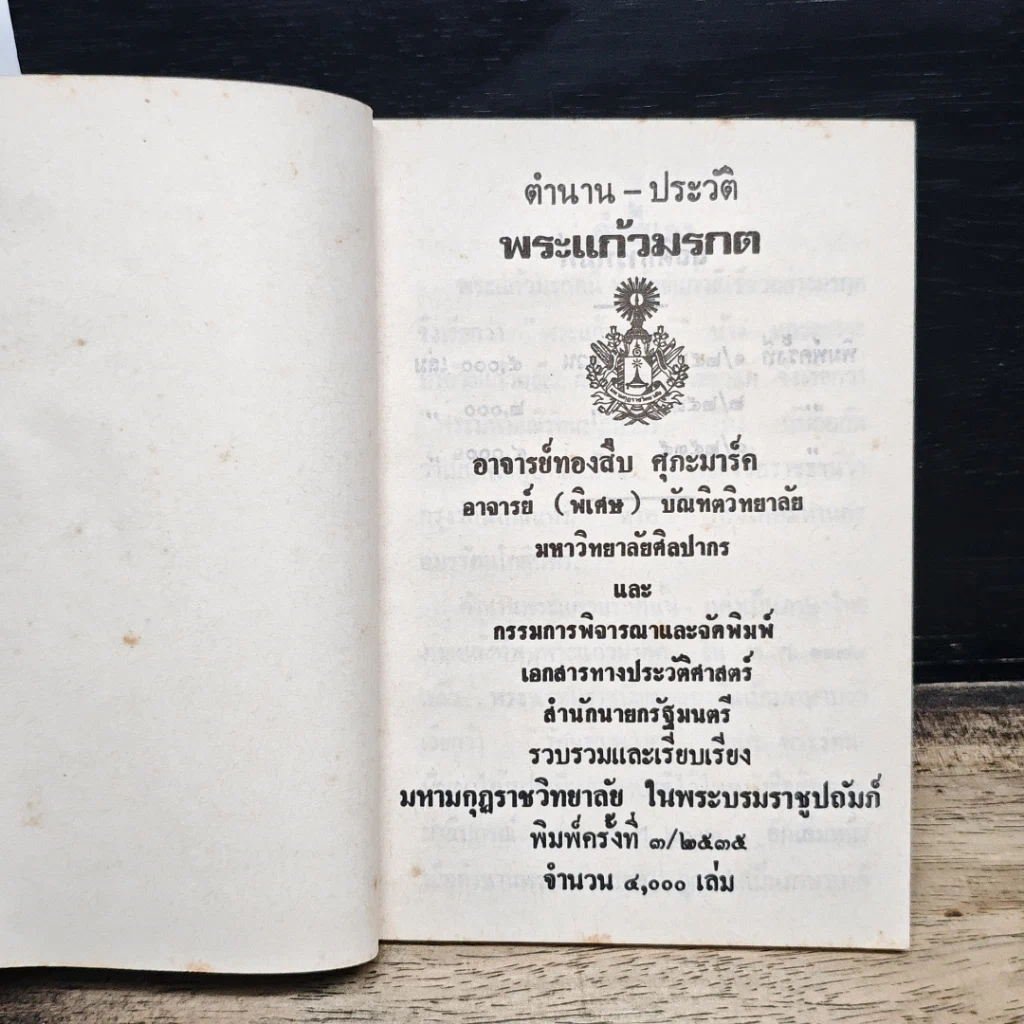 ตำนาน – ประวัติ
พระแก้วมรกต
อาจารย์ทองสืบ ศุภะมาร์ค
อาจารย์ (พิเศษ) บัณฑิตวิทยาลัย
มหาวิทยาลัยศิลปากร
และ
กรรมการพิจารณาและจัดพิมพ์
เอกสารทางประวัติศาสตร์
สำนักนายกรัฐมนตรี
รวบรวมและเรียบเรียง
มหามกุฏราชวิทยาลัย ในพระบรมราชูปถัมภ์
พิมพ์ครั้งที่ ๓/๒๕๓๕
จำนวน ๔,๐๐๐ เล่ม